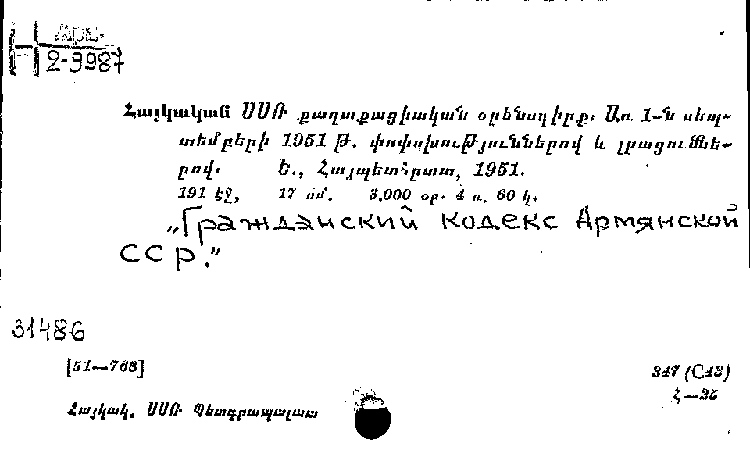 Арм.
2-3987
Հայկական ՍՍՌ քաղաքացիական օրենսդիրք. Առ 1-ն սեպ-
տեմբերի 1951 թ. փոփոխություններով և լրացումնե-
րով. Ե., Հայպետհրատ, 1951.
191 էջ, 17 սմ. 3.000 օր. 4 ռ. 60 կ.
„Гражданский кодекс Армянской
ССР."
31486
[51—768]
347 (С43)
Հ—35
Հայկակ. ՍՍՌ Պետգրապալատ